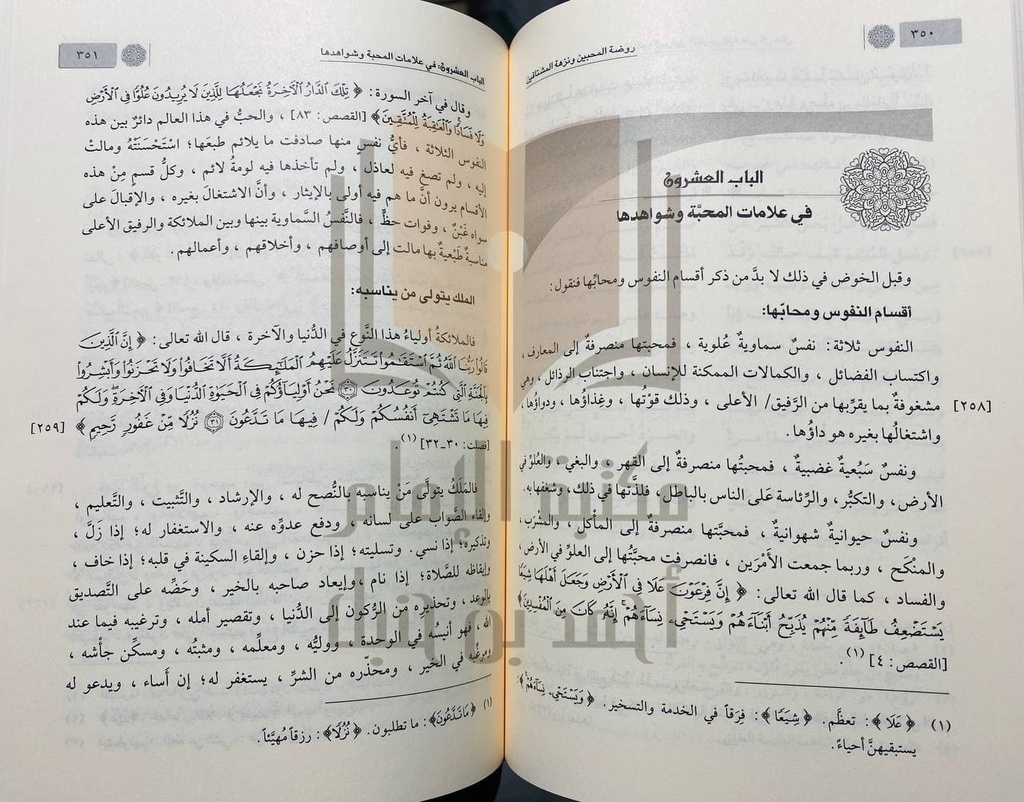 ٣٥٠
روضة المحبين ونزهة المشتاقين
الباب العشرون
في علامات المحبَّة وشواهدها
وقبل الخوض في ذلك لا بدَّ من ذكر أقسام النفوس ومحابِّها فنقول:
أقسام النفوس ومحابّها:
النفوس ثلاثة: نفسٌ سماويةٌ عُلوية ، فمحبتها منصرفةٌ إلى المعارف ،
واكتساب الفضائل ، والكمالات الممكنة للإنسان ، واجتناب الرذائل ، وهي
[٢٥٨] مشغوفةٌ بما يقرِّبها من الرَّفيق/ الأعلى ، وذلك قوتُها ، وغِذاؤُها ، ودواؤُها ،
واشتغالُها بغيره هو داؤُها.
ونفسٌ سَبُعيةٌ غضبيةٌ ، فمحبتُها منصرفةٌ إلى القهر ، والبغي ، والعُلوِّ في
الأرض، والتكبُّر، والرِّئاسة عَلى الناس بالباطل، فلذَّتها في ذلك، وشغفها به.
ونفسٌ حيوانيةٌ شهوانيةٌ ، فمحبَّتها منصرفةٌ إلى المأكل ، والمشْرَب ،
والمنْكَح ، وربما جمعت الأمْرَين ، فانصرفت محبَّتُها إلى العلوِّ في الأرض،
والفساد ، كما قال الله تعالى: ﴿ إِنَّ فِرْعَوْنَ عَلَا فِي الْأَرْضِ وَجَعَلَ أَهْلَهَا شِيَعًا
يَسْتَضْعِفُ طَآئِفَةً مِّنْهُمْ يُذَبِّحُ أَبْنَآءَهُمْ وَيَسْتَحْيِۦ نِسَآءَهُمْ ۚ إِنَّهُۥ كَانَ مِنَ الْمُفْسِدِينَ ﴾
[القصص: ٤] (١).
(١) ﴿عَلَا﴾: تعظَّم. ﴿شِيَعًا﴾: فِرَقاً في الخدمة والتسخير. ﴿وَيَسْتَحْيِۦ نِسَآءَهُمْ﴾:
يستبقيهنَّ أحياءً.
الباب العشرون: في علامات المحبة وشواهدها
٣٥١
وقال في آخر السورة: ﴿ تِلْكَ الدَّارُ الْآخِرَةُ نَجْعَلُهَا لِلَّذِينَ لَا يُرِيدُونَ عُلُوًّا فِي الْأَرْضِ
وَلَا فَسَادًا ۚ وَالْعَاقِبَةُ لِلْمُتَّقِينَ﴾ [القصص: ٨٣] ، والحبُّ في هذا العالم دائرٌ بين هذه
النفوس الثلاثة ، فأيُّ نفسٍ منها صادفت ما يلائم طبعَها؛ استَحْسَنَتْهُ ومالتْ
إليه ، ولم تصغِ فيه لعاذل ، ولم تأخذها فيه لومةُ لائم ، وكلُّ قسمٍ مِنْ هذه
الأقسام يرون أنَّ ما هم فيه أولى بالإيثار ، وأنَّ الاشتغالَ بغيره ، والإقبالَ على
سواه غَبْنٌ ، وفوات حظٍّ ، فالنَّفسُ السَّماوية بينها وبين الملائكة والرفيق الأعلى
مناسبةٌ طَبْعيةٌ بها مالت إلى أوصافهم ، وأخلاقهم ، وأعمالهم.
الملك يتولى من يناسبه:
فالملائكةُ أولياءُ هذا النَّوع في الدُّنيا والآخرة ، قال الله تعالى: ﴿ إِنَّ الَّذِينَ
قَالُوا رَبُّنَا اللَّهُ ثُمَّ اسْتَقَامُوا تَتَنَزَّلُ عَلَيْهِمُ الْمَلَائِكَةُ أَلَّا تَخَافُوا وَلَا تَحْزَنُوا وَأَبْشِرُوا
بِالْجَنَّةِ الَّتِي كُنتُمْ تُوعَدُونَ ۝٣٠ نَحْنُ أَوْلِيَاؤُكُمْ فِي الْحَيَاةِ الدُّنْيَا وَفِي الْآخِرَةِ ۖ وَلَكُمْ
فِيهَا مَا تَشْتَهِي أَنفُسُكُمْ وَلَكُمْ / فِيهَا مَا تَدَّعُونَ ۝٣١ نُزُلًا مِّنْ غَفُورٍ رَّحِيمٍ ﴾ [٢٥٩]
[فصلت: ٣٠ـ٣٢] (١).
فالمَلَكُ يتولَّى مَنْ يناسبه بالنُّصح له ، والإرشاد ، والتَّثبيت ، والتَّعليم ،
وإلقاء الصَّواب على لسانه ، ودفع عدوِّه عنه ، والاستغفار له؛ إذا زَلَّ ،
وتذكيره؛ إذا نسي. وتسليته؛ إذا حزن ، وإلقاءِ السكينة في قلبه؛ إذا خاف ،
وإيقاظه للصَّلاة؛ إذا نام ، وإيعاد صاحبه بالخير ، وحَضِّه على التَّصديق
بالوعد ، وتحذيره من الرُّكون إلى الدُّنيا ، وتقصير أمله ، وترغيبه فيما عند
الله ، فهو أنيسُه في الوحدة ، ووليُّه ، ومعلِّمه ، ومثبتُه ، ومسكِّن جأشه ،
ومرغِّبه في الخير ، ومحذِّره من الشرِّ ، يستغفر له؛ إن أساء ، ويدعو له
(١) ﴿مَا تَدَّعُونَ﴾: ما تطلبون. ﴿نُزُلًا﴾: رزقاً مُهيَّئاً.
مكتبة الإمام
أحمد بن حنبل